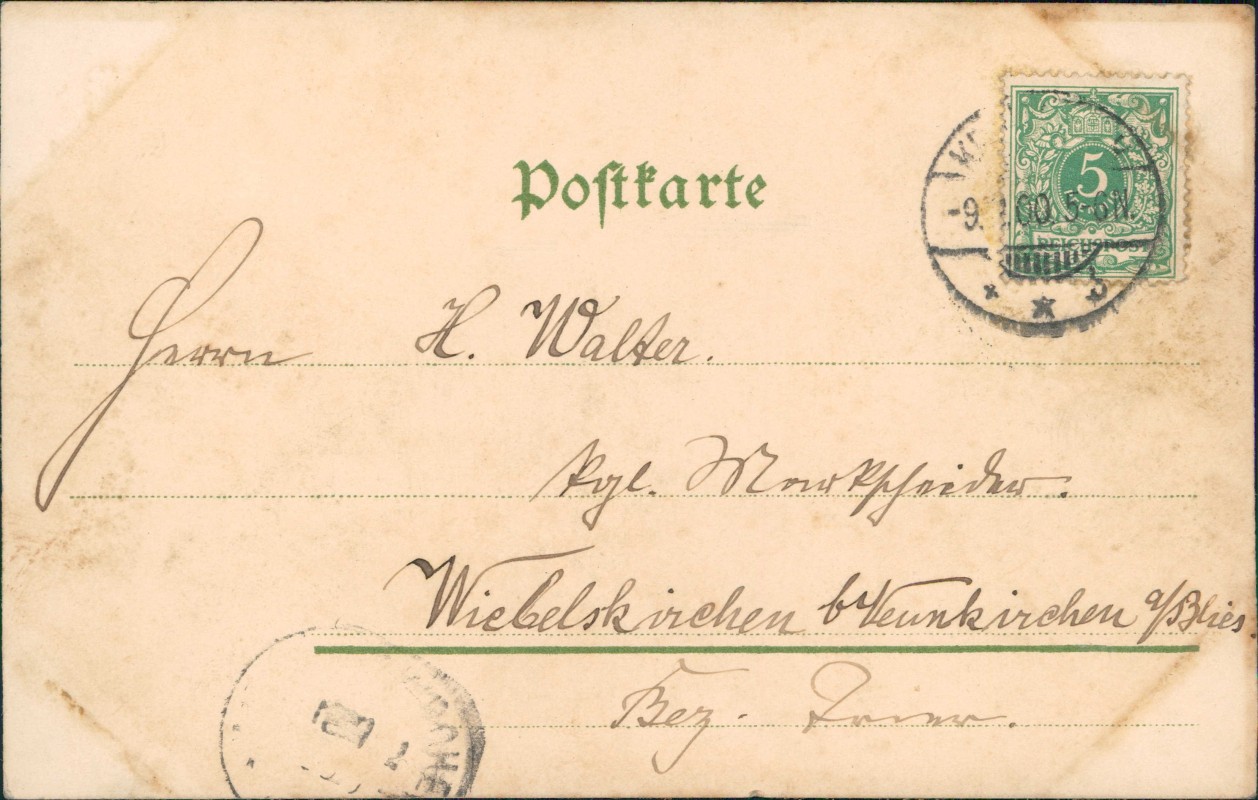 Postkarte
5
REICHSPOST
-9. .00. 5-6N.
Herrn H. Walter.
kgl. Markscheider.
Wiebelskirchen b/Neunkirchen a/Blies
Bez. Trier.